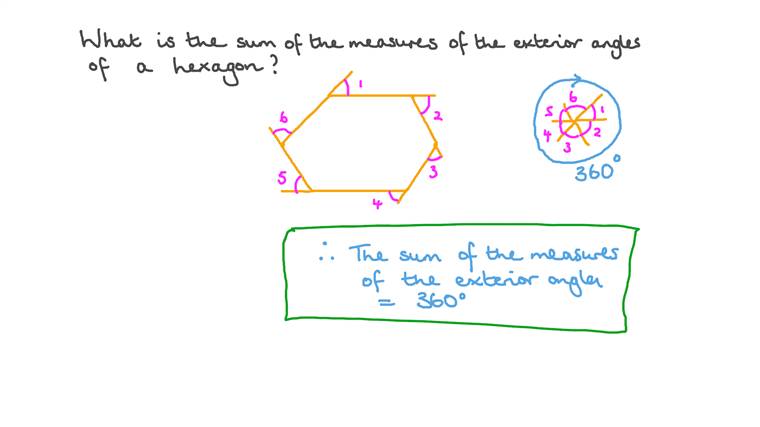 What is the sum of the measures of the exterior angles
of a hexagon?
1
2
3
4
5
6
6
1
5
2
4
3
360°
∴ The sum of the measures
of the exterior angles
= 360°